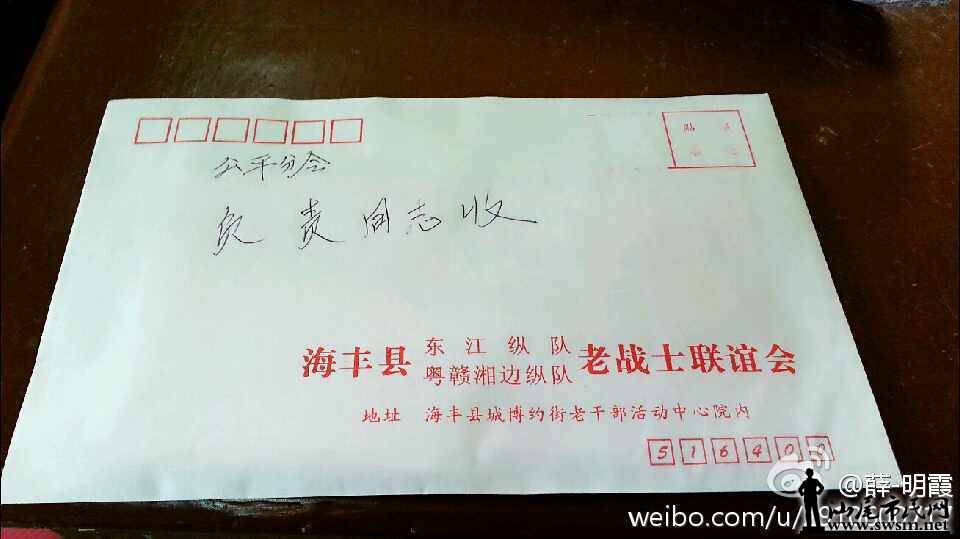 贴
公平分会
负责同志收
海丰县 东江纵队 粤赣湘边纵队 老战士联谊会
地址 海丰县城博约街老干部活动中心院内
516400
@薛-明霞
weibo.com/u/
汕尾市民网
www.swsm.net